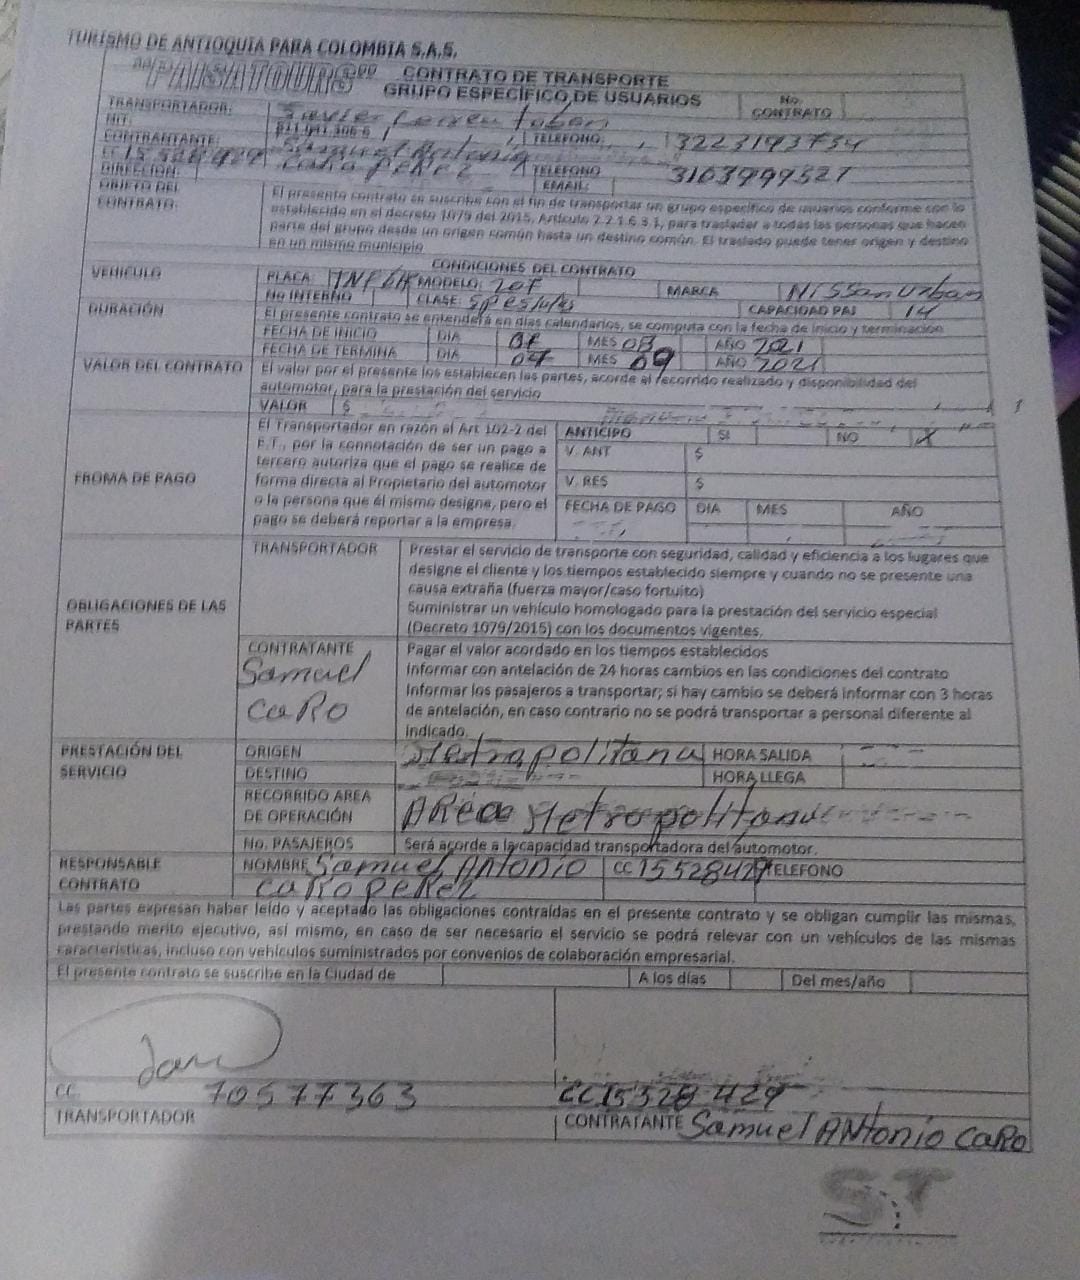 TURISMO DE ANTIOQUIA PARA COLOMBIA S.A.S.
"PAISATOURS" CONTRATO DE TRANSPORTE
GRUPO ESPECÍFICO DE USUARIOS No. CONTRATO
TRANSPORTADOR: Javier
NIT: 811.041.306-6 TELEFONO 3223193734
CONTRATANTE: Samuel Antonio
CC 15528429 CARO PEREZ TELEFONO 3103999527
DIRECIÓN: EMAIL:
OBJETO DEL CONTRATO: El presente contrato se suscribe con el fin de transportar un grupo especifico de usuarios conforme con lo
establecido en el decreto 1079 del 2015, Artículo 2.2.1.6.3.1, para trasladar a todas las personas que hacen
parte del grupo desde un origen común hasta un destino común. El traslado puede tener origen y destino
en un mismo municipio
CONDICIONES DEL CONTRATO
VEHICULO PLACA: MODELO: MARCA Nissan Urban
No INTERNO CLASE: CAPACIDAD PAJ 14
DURACIÓN El presente contrato se entenderá en días calendarios, se computa con la fecha de inicio y terminación
FECHA DE INICIO DIA MES 08 AÑO 2021
FECHA DE TERMINA DIA 07 MES 09 AÑO 2021
VALOR DEL CONTRATO El valor por el presente los establecen las partes, acorde al recorrido realizado y disponibilidad del
automotor, para la prestación del servicio
VALOR $
FROMA DE PAGO El Transportador en razón al Art 102-2 del
E.T., por la connotación de ser un pago a
tercero autoriza que el pago se realice de
forma directa al Propietario del automotor
o la persona que él mismo designe, pero el
pago se deberá reportar a la empresa.
ANTICIPO SI NO X
V. ANT $
V. RES $
FECHA DE PAGO DIA MES AÑO
OBLIGACIONES DE LAS PARTES
TRANSPORTADOR Prestar el servicio de transporte con seguridad, calidad y eficiencia a los lugares que
designe el cliente y los tiempos establecido siempre y cuando no se presente una
causa extraña (fuerza mayor/caso fortuito)
Suministrar un vehículo homologado para la prestación del servicio especial
(Decreto 1079/2015) con los documentos vigentes.
CONTRATANTE Pagar el valor acordado en los tiempos establecidos
Samuel Informar con antelación de 24 horas cambios en las condiciones del contrato
CARO Informar los pasajeros a transportar; si hay cambio se deberá informar con 3 horas
de antelación, en caso contrario no se podrá transportar a personal diferente al
indicado.
PRESTACIÓN DEL SERVICIO ORIGEN Metropolitana HORA SALIDA
DESTINO HORA LLEGA
RECORRIDO AREA
DE OPERACIÓN AREA Metropolitana
No. PASAJEROS Será acorde a la capacidad transportadora del automotor.
RESPONSABLE CONTRATO NOMBRE Samuel ANTONIO CC 15528429 TELEFONO
CARO PEREZ
Las partes expresan haber leído y aceptado las obligaciones contraídas en el presente contrato y se obligan cumplir las mismas,
prestando merito ejecutivo, así mismo, en caso de ser necesario el servicio se podrá relevar con un vehículos de las mismas
características, incluso con vehículos suministrados por convenios de colaboración empresarial.
El presente contrato se suscribe en la Ciudad de A los días Del mes/año
CC. 70577363 CC 15528429
TRANSPORTADOR CONTRATANTE Samuel ANtonio CARO
ST